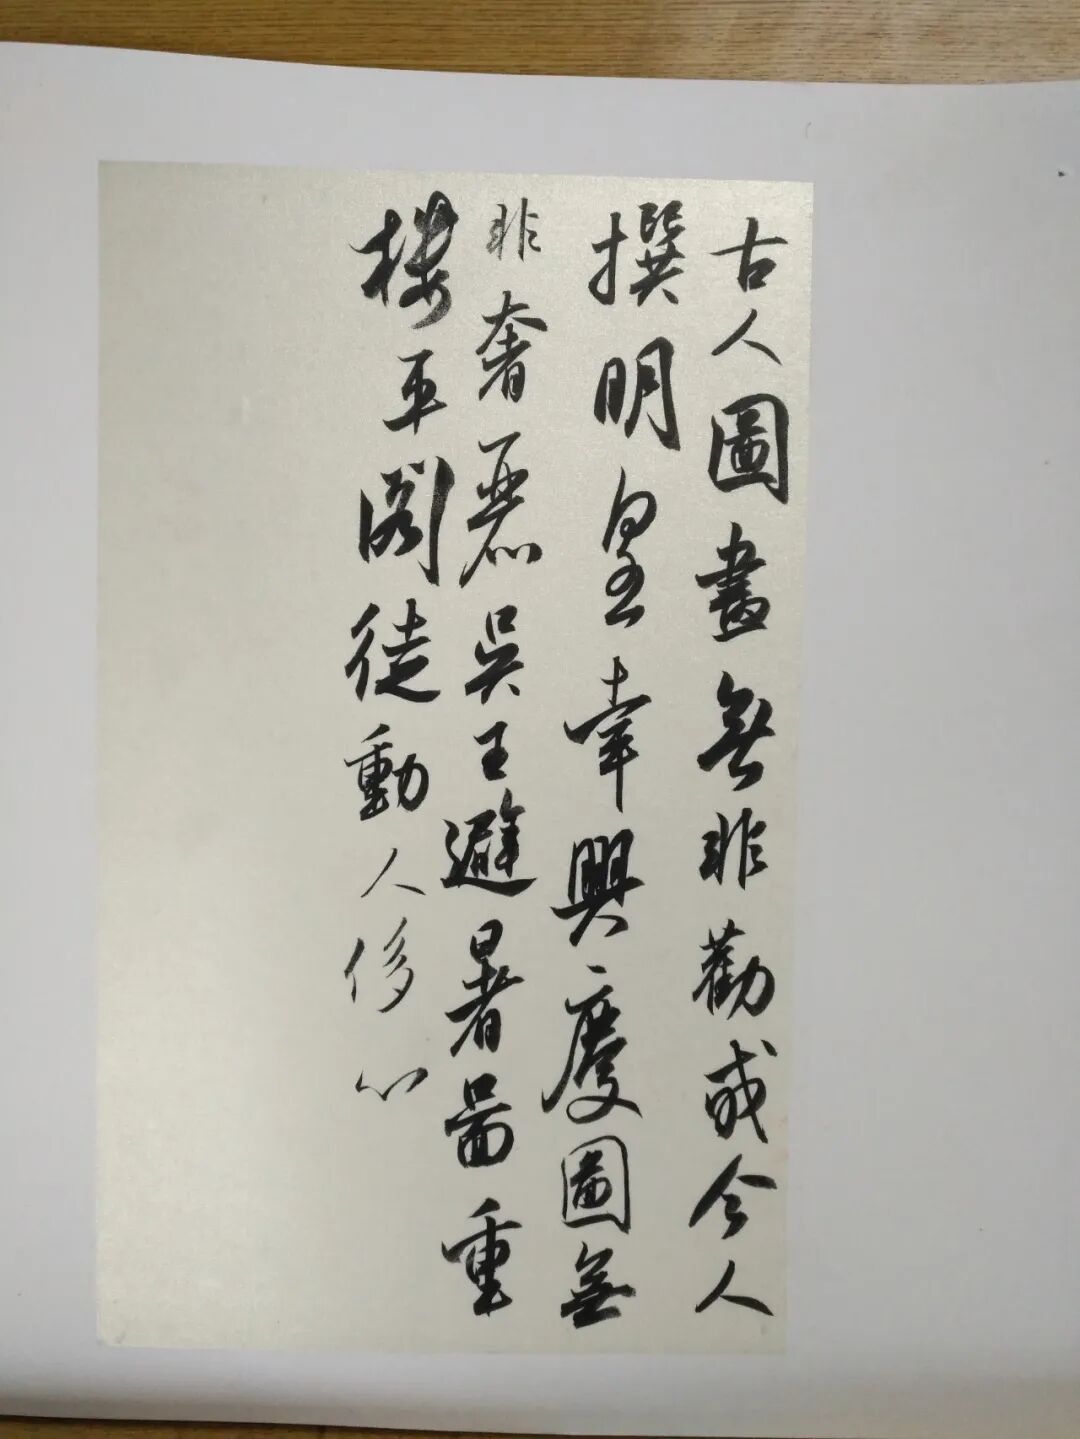 古人圖畫無非勸戒今人
撰明皇幸興慶圖無
非奢麗吳王避暑圖重
樓平閣徒動人侈心